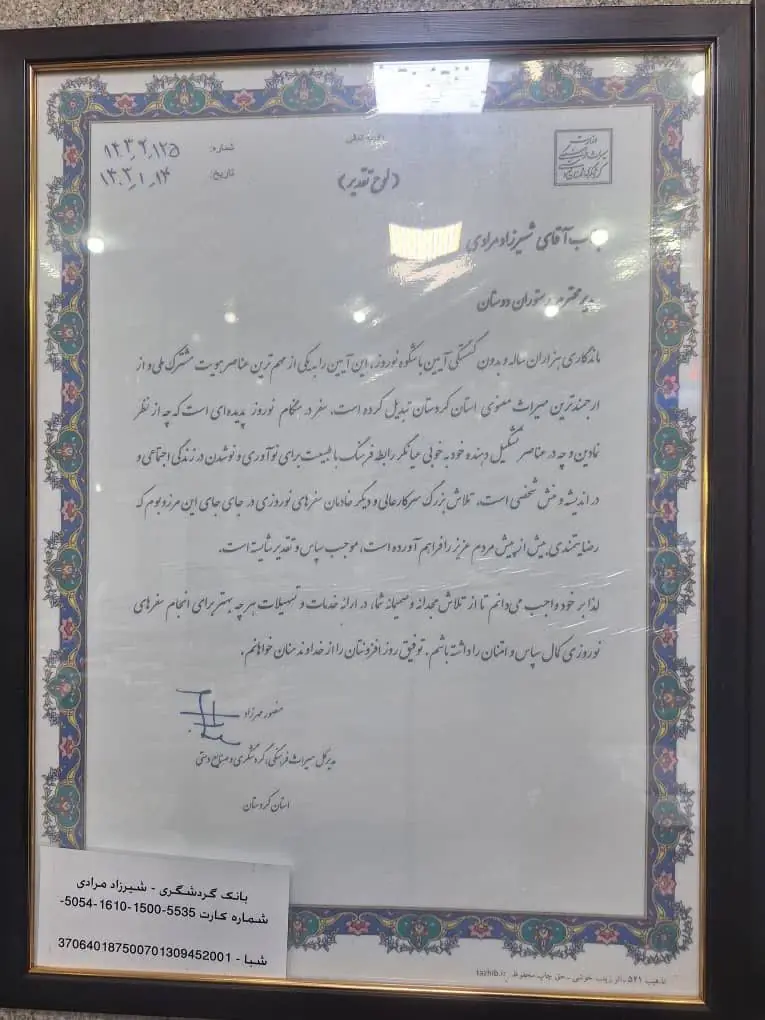 شماره: ۱۴۰۳٫۲٫۱۲۵
باسمه تعالی
تاریخ: ۱۴۰۳٫۱٫۱۴
(لوح تقدیر)
جناب آقای شیرزاد مرادی
مدیر محترم رستوران دوستان
ماندگاری هزاران ساله و بدون گسستگی آیین باشکوه نوروز، این آیین را به یکی از مهم ترین عناصر هویت مشترک ملی و از
ارجمندترین میراث معنوی استان کردستان تبدیل کرده است. سفر در هنگام نوروز پدیده ای است که چه از نظر
نمادین و چه در عناصر تشکیل دهنده خود به خوبی عیانگر رابطه فرهنگ با طبیعت برای نوآوری و نوشدن در زندگی اجتماعی و
در اندیشه و منش شخصی است. تلاش بزرگ سرکارعالی و دیگر خادمان سفرهای نوروزی در جای جای این مرز و بوم که
رضایتمندی بیش از پیش مردم عزیز را فراهم آورده است، موجب سپاس و تقدیر شایسته است.
لذا بر خود واجب می دانم تا از تلاش مجدانه و صمیمانه شما، در ارائه خدمات و تسهیلات هر چه بهتر برای انجام سفرهای
نوروزی کمال سپاس و امتنان را داشته باشم. توفیق روز افزونتان را از خداوند منان خواهانم.
منصور مهرزاد
مدیرکل میراث فرهنگی، گردشگری و صنایع دستی
استان کردستان
بانک گردشگری - شیرزاد مرادی
شماره کارت 5535-1500-1610-5054-
شبا - 370640187500701309452001
تذهیب ۵۲۱ حق چاپ محفوظ tazhib.ir